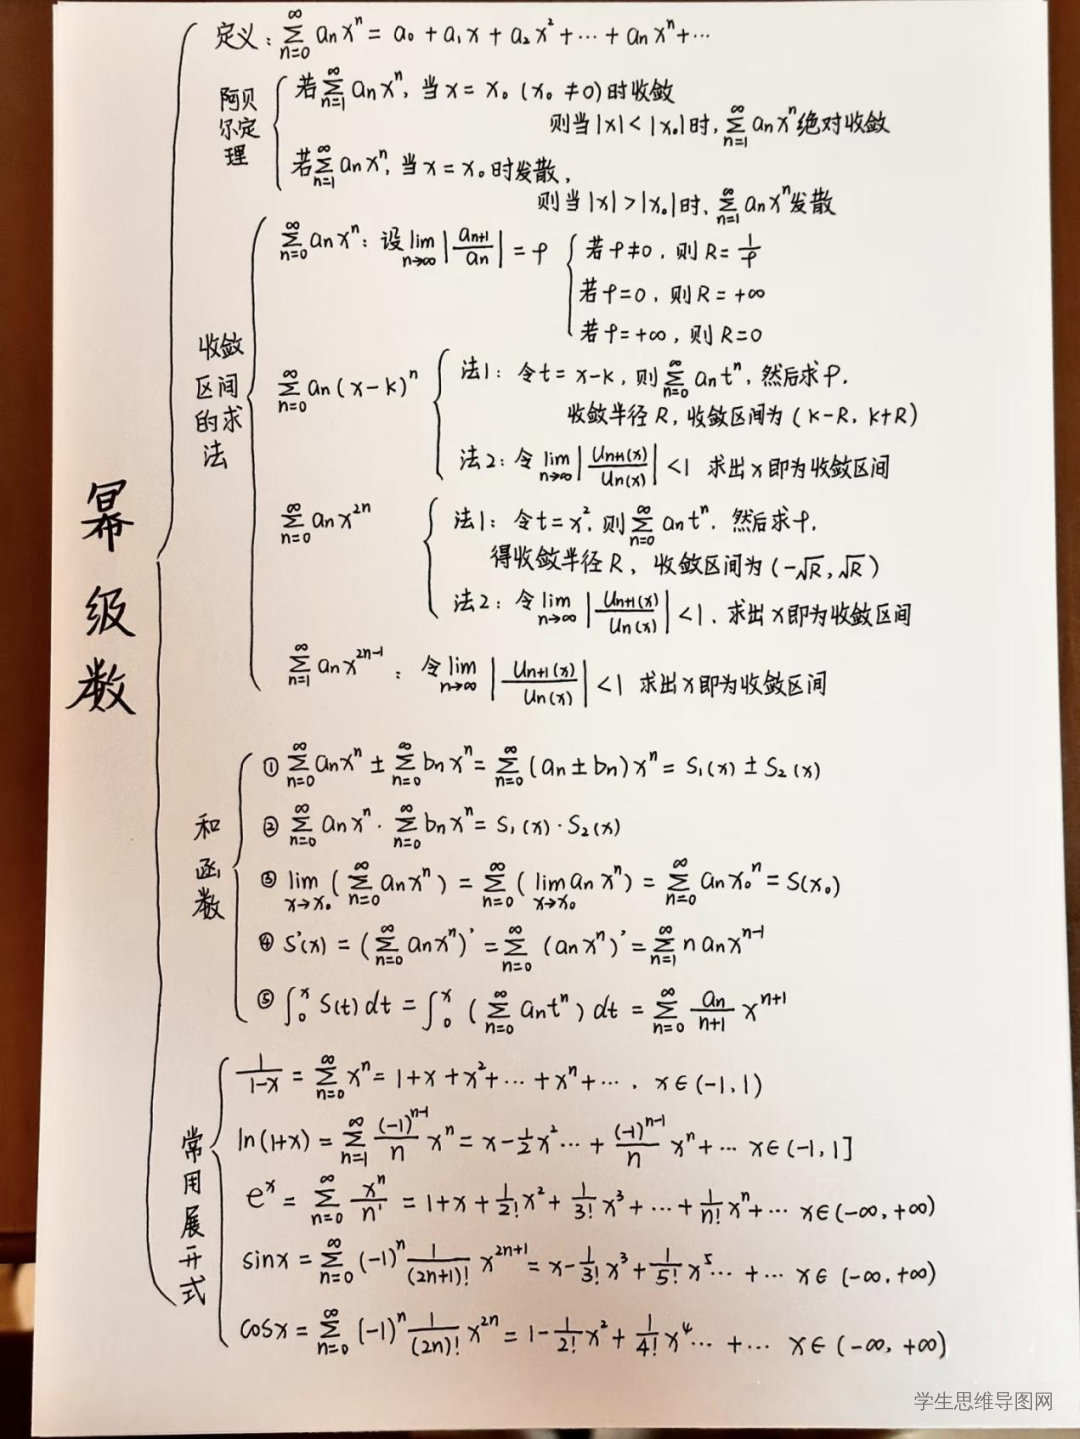 幂级数
定义：∑_{n=0}^{∞} aₙxⁿ = a₀ + a₁x + a₂x² + ⋯ + aₙxⁿ + ⋯
阿贝尔定理
若∑_{n=1}^{∞} aₙxⁿ, 当 x = x₀ (x₀ ≠ 0) 时收敛
则当 |x| < |x₀| 时, ∑_{n=1}^{∞} aₙxⁿ 绝对收敛
若∑_{n=1}^{∞} aₙxⁿ, 当 x = x₀ 时发散,
则当 |x| > |x₀| 时, ∑_{n=1}^{∞} aₙxⁿ 发散
收敛区间的求法
∑_{n=0}^{∞} aₙxⁿ：设 lim_{n→∞} |aₙ₊₁/aₙ| = ρ
若 ρ≠0, 则 R = 1/ρ
若 ρ=0, 则 R = +∞
若 ρ=+∞, 则 R=0
∑_{n=0}^{∞} aₙ(x-k)ⁿ
法1: 令 t = x-k, 则 ∑_{n=0}^{∞} aₙtⁿ, 然后求 ρ.
收敛半径 R, 收敛区间为 (k-R, k+R)
法2: 令 lim_{n→∞} |uₙ₊₁(x)/uₙ(x)| < 1 求出 x 即为收敛区间
∑_{n=0}^{∞} aₙx²ⁿ
法1: 令 t = x², 则 ∑_{n=0}^{∞} aₙtⁿ. 然后求 ρ.
得收敛半径 R, 收敛区间为 (-√R, √R)
法2: 令 lim_{n→∞} |uₙ₊₁(x)/uₙ(x)| < 1, 求出 x 即为收敛区间
∑_{n=1}^{∞} aₙx²ⁿ⁻¹：令 lim_{n→∞} |uₙ₊₁(x)/uₙ(x)| < 1 求出 x 即为收敛区间
和函数
① ∑_{n=0}^{∞} aₙxⁿ ± ∑_{n=0}^{∞} bₙxⁿ = ∑_{n=0}^{∞} (aₙ ± bₙ)xⁿ = S₁(x) ± S₂(x)
② ∑_{n=0}^{∞} aₙxⁿ · ∑_{n=0}^{∞} bₙxⁿ = S₁(x) · S₂(x)
③ lim_{x→x₀} (∑_{n=0}^{∞} aₙxⁿ) = ∑_{n=0}^{∞} (lim_{x→x₀} aₙxⁿ) = ∑_{n=0}^{∞} aₙx₀ⁿ = S(x₀)
④ S'(x) = (∑_{n=0}^{∞} aₙxⁿ)' = ∑_{n=0}^{∞} (aₙxⁿ)' = ∑_{n=1}^{∞} n aₙxⁿ⁻¹
⑤ ∫₀ˣ S(t)dt = ∫₀ˣ (∑_{n=0}^{∞} aₙtⁿ) dt = ∑_{n=0}^{∞} aₙ/(n+1) xⁿ⁺¹
常用展开式
1/(1-x) = ∑_{n=0}^{∞} xⁿ = 1 + x + x² + ⋯ + xⁿ + ⋯ , x∈(-1,1)
ln(1+x) = ∑_{n=1}^{∞} (-1)ⁿ⁻¹/n xⁿ = x - 1/2 x² ⋯ + (-1)ⁿ⁻¹/n xⁿ + ⋯ x∈(-1,1]
eˣ = ∑_{n=0}^{∞} xⁿ/n! = 1 + x + 1/2! x² + 1/3! x³ + ⋯ + 1/n! xⁿ + ⋯ x∈(-∞,+∞)
sinx = ∑_{n=0}^{∞} (-1)ⁿ 1/(2n+1)! x²ⁿ⁺¹ = x - 1/3! x³ + 1/5! x⁵ ⋯ + ⋯ x∈(-∞,+∞)
cosx = ∑_{n=0}^{∞} (-1)ⁿ 1/(2n)! x²ⁿ = 1 - 1/2! x² + 1/4! x⁴ ⋯ + ⋯ x∈(-∞,+∞)
学生思维导图网